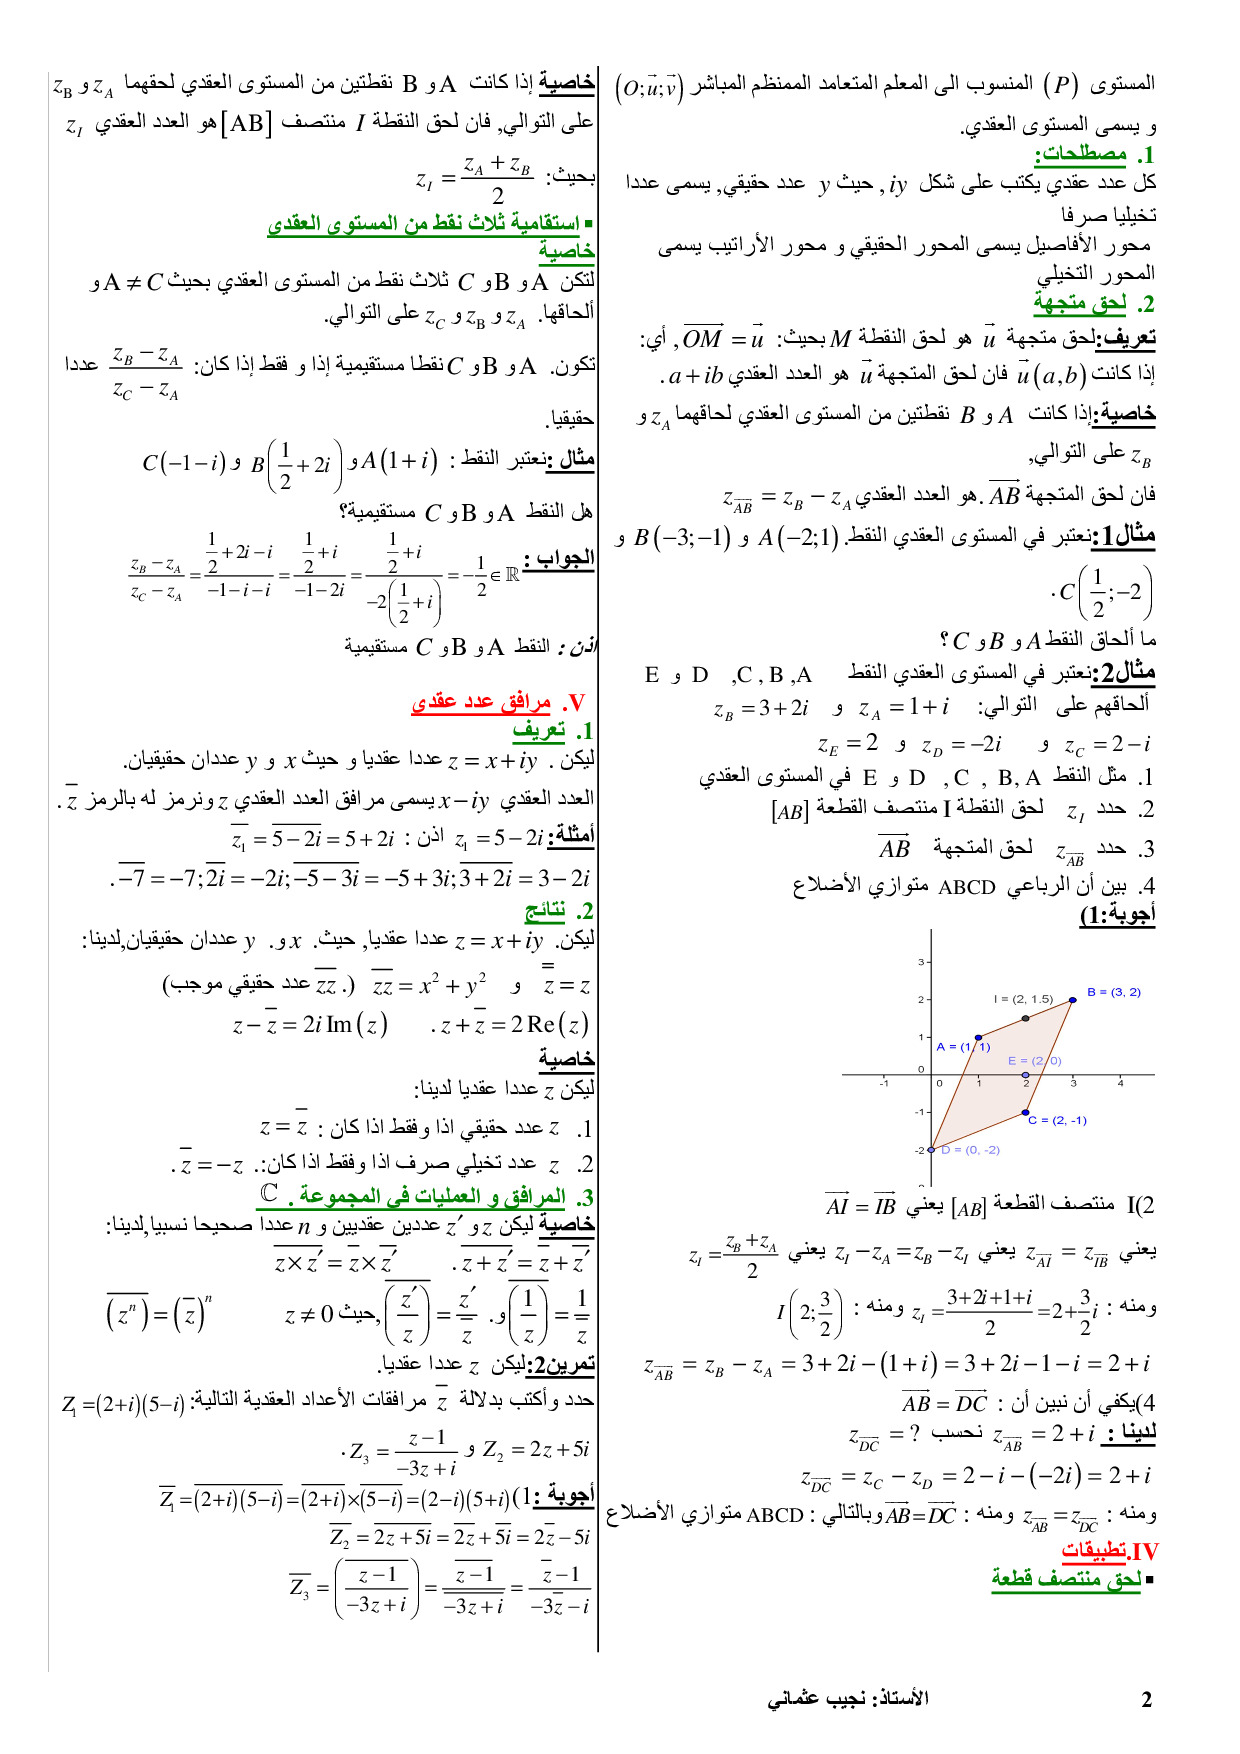 المستوى (P) المنسوب الى المعلم المتعامد الممنظم المباشر (O;u⃗;v⃗)
و يسمى المستوى العقدي.
1. مصطلحات:
كل عدد عقدي يكتب على شكل iy , حيث y عدد حقيقي, يسمى عددا
تخيليا صرفا
محور الأفاصيل يسمى المحور الحقيقي و محور الأراتيب يسمى
المحور التخيلي
2. لحق متجهة
تعريف:لحق متجهة u⃗ هو لحق النقطة M بحيث: OM⃗ = u⃗ , أي:
إذا كانت u⃗(a,b) فان لحق المتجهة u⃗ هو العدد العقدي a+ib .
خاصية:إذا كانت A و B نقطتين من المستوى العقدي لحاقهما z_A و
z_B على التوالي,
فان لحق المتجهة AB⃗ .هو العدد العقدي z_AB⃗ = z_B − z_A
مثال1:نعتبر في المستوى العقدي النقط. A(−2;1) و B(−3;−1) و
C(1/2;−2) .
ما ألحاق النقط A و B و C ؟
مثال2:نعتبر في المستوى العقدي النقط A, B , C, D و E
ألحاقهم على التوالي: z_A = 1+i و z_B = 3+2i
z_C = 2−i و z_D = −2i و z_E = 2
1. مثل النقط A ,B , C , D و E في المستوى العقدي
2. حدد z_I لحق النقطة I منتصف القطعة [AB]
3. حدد z_AB⃗ لحق المتجهة AB⃗
4. بين أن الرباعي ABCD متوازي الأضلاع
أجوبة:1)
3
2
1
0
-1
-2
-1 0 1 2 3 4
I = (2, 1.5)
B = (3, 2)
A = (1, 1)
E = (2, 0)
C = (2, -1)
D = (0, -2)
2)I منتصف القطعة [AB] يعني AI⃗ = IB⃗
يعني z_AI⃗ = z_IB⃗ يعني z_I − z_A = z_B − z_I يعني z_I = (z_B + z_A)/2
ومنه : z_I = (3+2i+1+i)/2 = 2 + (3/2)i ومنه : I(2;3/2)
z_AB⃗ = z_B − z_A = 3+2i−(1+i) = 3+2i−1−i = 2+i
4)يكفي أن نبين أن : AB⃗ = DC⃗
لدينا : z_AB⃗ = 2+i نحسب z_DC⃗ = ?
z_DC⃗ = z_C − z_D = 2−i−(−2i) = 2+i
ومنه : z_AB⃗ = z_DC⃗ ومنه : AB⃗=DC⃗ وبالتالي : ABCD متوازي الأضلاع
IV.تطبيقات
▪ لحق منتصف قطعة
خاصية إذا كانت A و B نقطتين من المستوى العقدي لحقهما z_A و z_B
على التوالي, فان لحق النقطة I منتصف [AB] هو العدد العقدي z_I
بحيث: z_I = (z_A + z_B)/2
▪ استقامية ثلاث نقط من المستوى العقدي
خاصية
لتكن A و B و C ثلاث نقط من المستوى العقدي بحيث A ≠ C و
ألحاقها. z_A و z_B و z_C على التوالي.
تكون. A و B و C نقطا مستقيمية إذا و فقط إذا كان: (z_B − z_A)/(z_C − z_A) عددا
حقيقيا.
مثال :نعتبر النقط : A(1+i) و B(1/2+2i) و C(−1−i)
هل النقط A و B و C مستقيمية؟
الجواب : (z_B − z_A)/(z_C − z_A) = (1/2+2i−i)/(−1−i−i) = (1/2+i)/(−1−2i) = (1/2+i)/(−2(1/2+i)) = −1/2 ∈ ℝ
اذن : النقط A و B و C مستقيمية
V. مرافق عدد عقدي
1. تعريف
ليكن . z = x+iy عددا عقديا و حيث x و y عددان حقيقيان.
العدد العقدي x−iy يسمى مرافق العدد العقدي z ونرمز له بالرمز z̅ .
أمثلة: z₁ = 5−2i اذن : z̅₁ = \overline{5−2i} = 5+2i
\overline{−7} = −7; \overline{2i} = −2i; \overline{−5−3i} = −5+3i; \overline{3+2i} = 3−2i .
2. نتائج
ليكن. z = x+iy عددا عقديا, حيث. x و. y عددان حقيقيان,لدينا:
\overline{z̅} = z و \overline{zz} = x²+y² (. \overline{zz} عدد حقيقي موجب)
z + z̅ = 2Re(z) . z − z̅ = 2i Im(z)
خاصية
ليكن z عددا عقديا لدينا:
1. z عدد حقيقي اذا وفقط اذا كان : z = z̅
2. z عدد تخيلي صرف اذا وفقط اذا كان:. z̅ = −z .
3. المرافق و العمليات في المجموعة . ℂ
خاصية ليكن z و z′ عددين عقديين و n عددا صحيحا نسبيا,لدينا:
\overline{z+z′} = z̅ + \overline{z′} . \overline{z×z′} = z̅ × \overline{z′}
\overline{(1/z)} = 1/z̅ و. \overline{(z′/z)} = \overline{z′}/z̅ ,حيث z ≠ 0 \overline{(zⁿ)} = (z̅)ⁿ
تمرين2:ليكن z عددا عقديا.
حدد وأكتب بدلالة z̅ مرافقات الأعداد العقدية التالية: Z₁ = (2+i)(5−i)
Z₂ = 2z+5i و Z₃ = (z−1)/(−3z+i) .
أجوبة :1) \overline{Z₁} = \overline{(2+i)(5−i)} = \overline{(2+i)}×\overline{(5−i)} = (2−i)(5+i)
\overline{Z₂} = \overline{2z+5i} = \overline{2z}+\overline{5i} = 2z̅−5i
\overline{Z₃} = \overline{((z−1)/(−3z+i))} = \overline{z−1}/\overline{−3z+i} = (z̅−1)/(−3z̅−i)
الأستاذ: نجيب عثماني
2